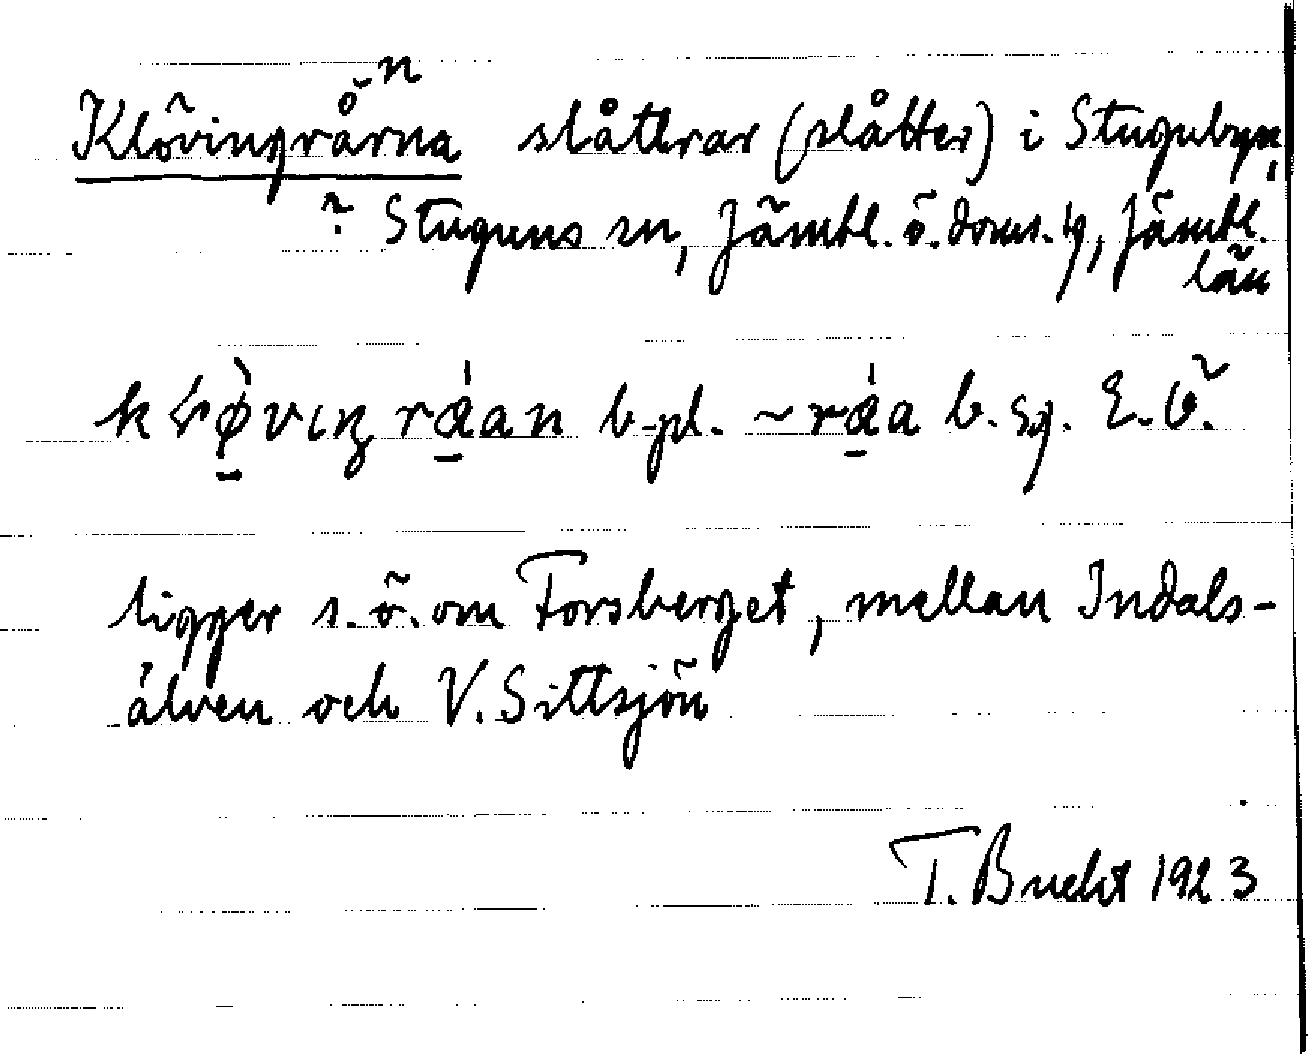 Klövingråarna slåttrar (slåtter) i Stugubyn,
? Stuguns sn, Jämtl. ö. doms. tg, Jämtl.
län
b. pl. ~ b. sg. E. Ö.
ligger s. ö. om Forsberget, mellan Indals-
älven och V. Sittsjön
T. Bucht 1923